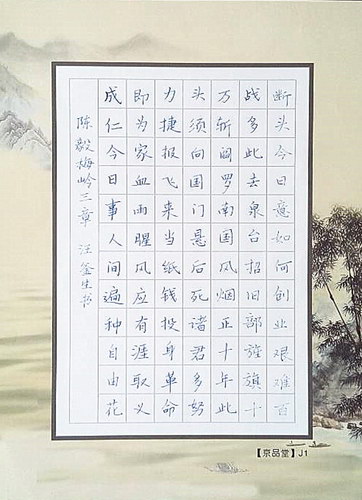 断头今日意如何创业艰难百
战多此去泉台招旧部旌旗十
万斩阎罗南国风烟正十年此
头须向国门悬后死诸君多努
力捷报飞来当纸钱投身革命
即为家血雨腥风应有涯取义
成仁今日事人间遍种自由花
陈毅梅岭三章 汪生书
【京品堂】J1